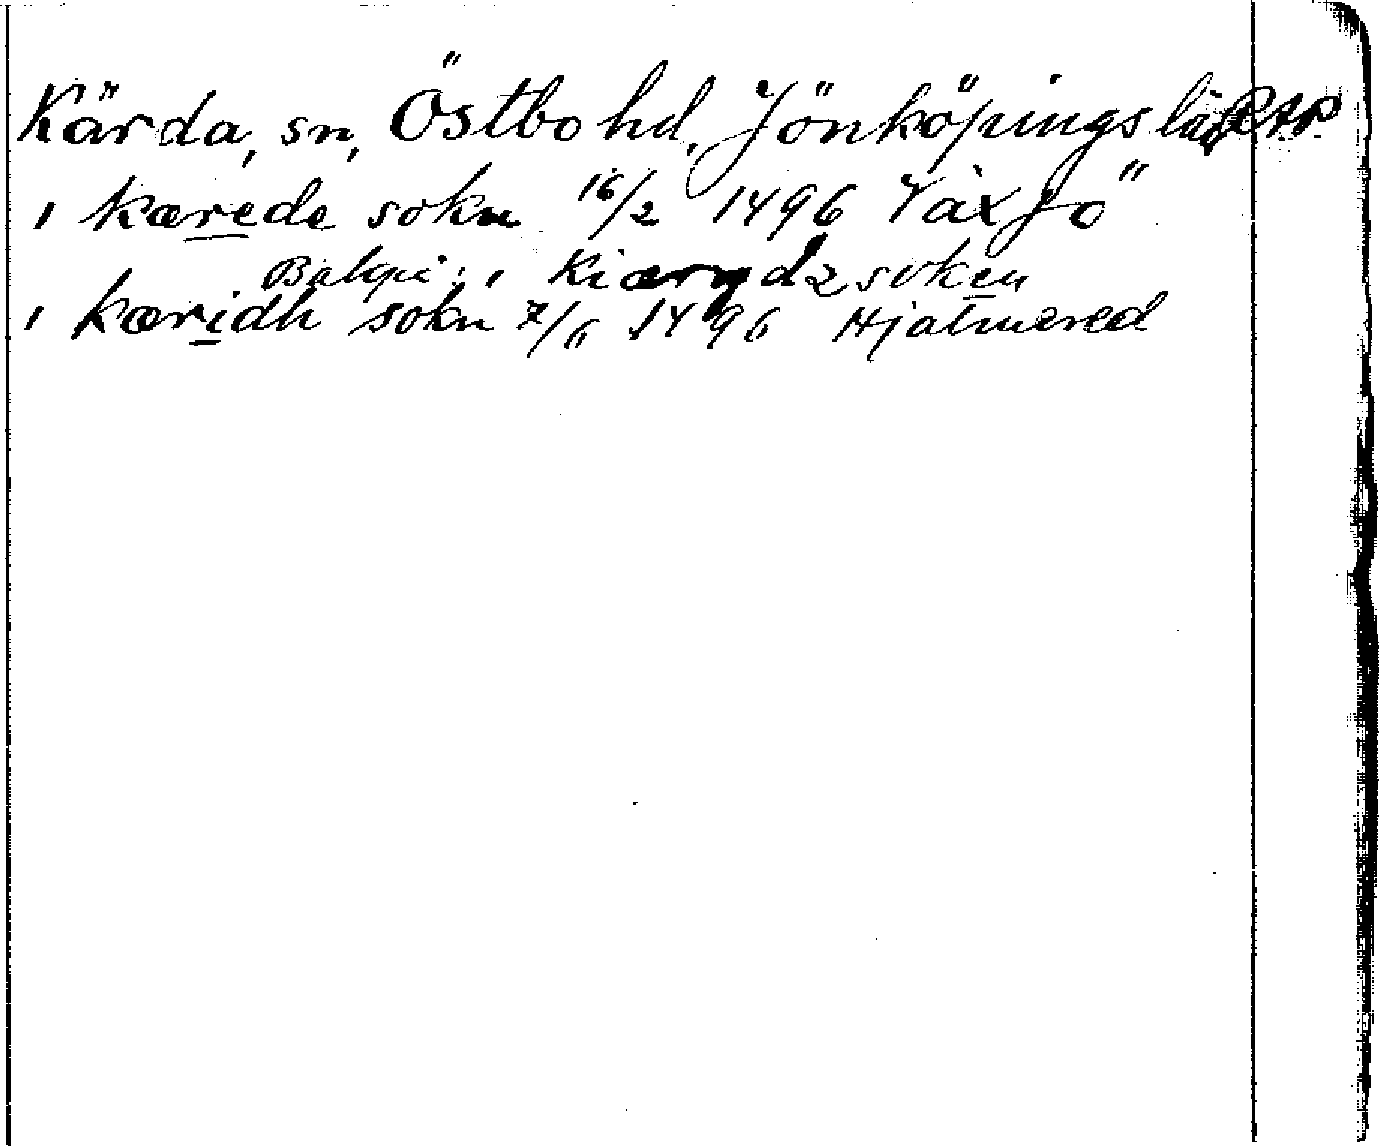 Kärda, sn, Östbo hd, Jönköpings län RAP.
i kærede sokn 16/2 1496 Växjö
i Kiærydz soken
i kæridh sokn 7/11 1496 Hjätmered